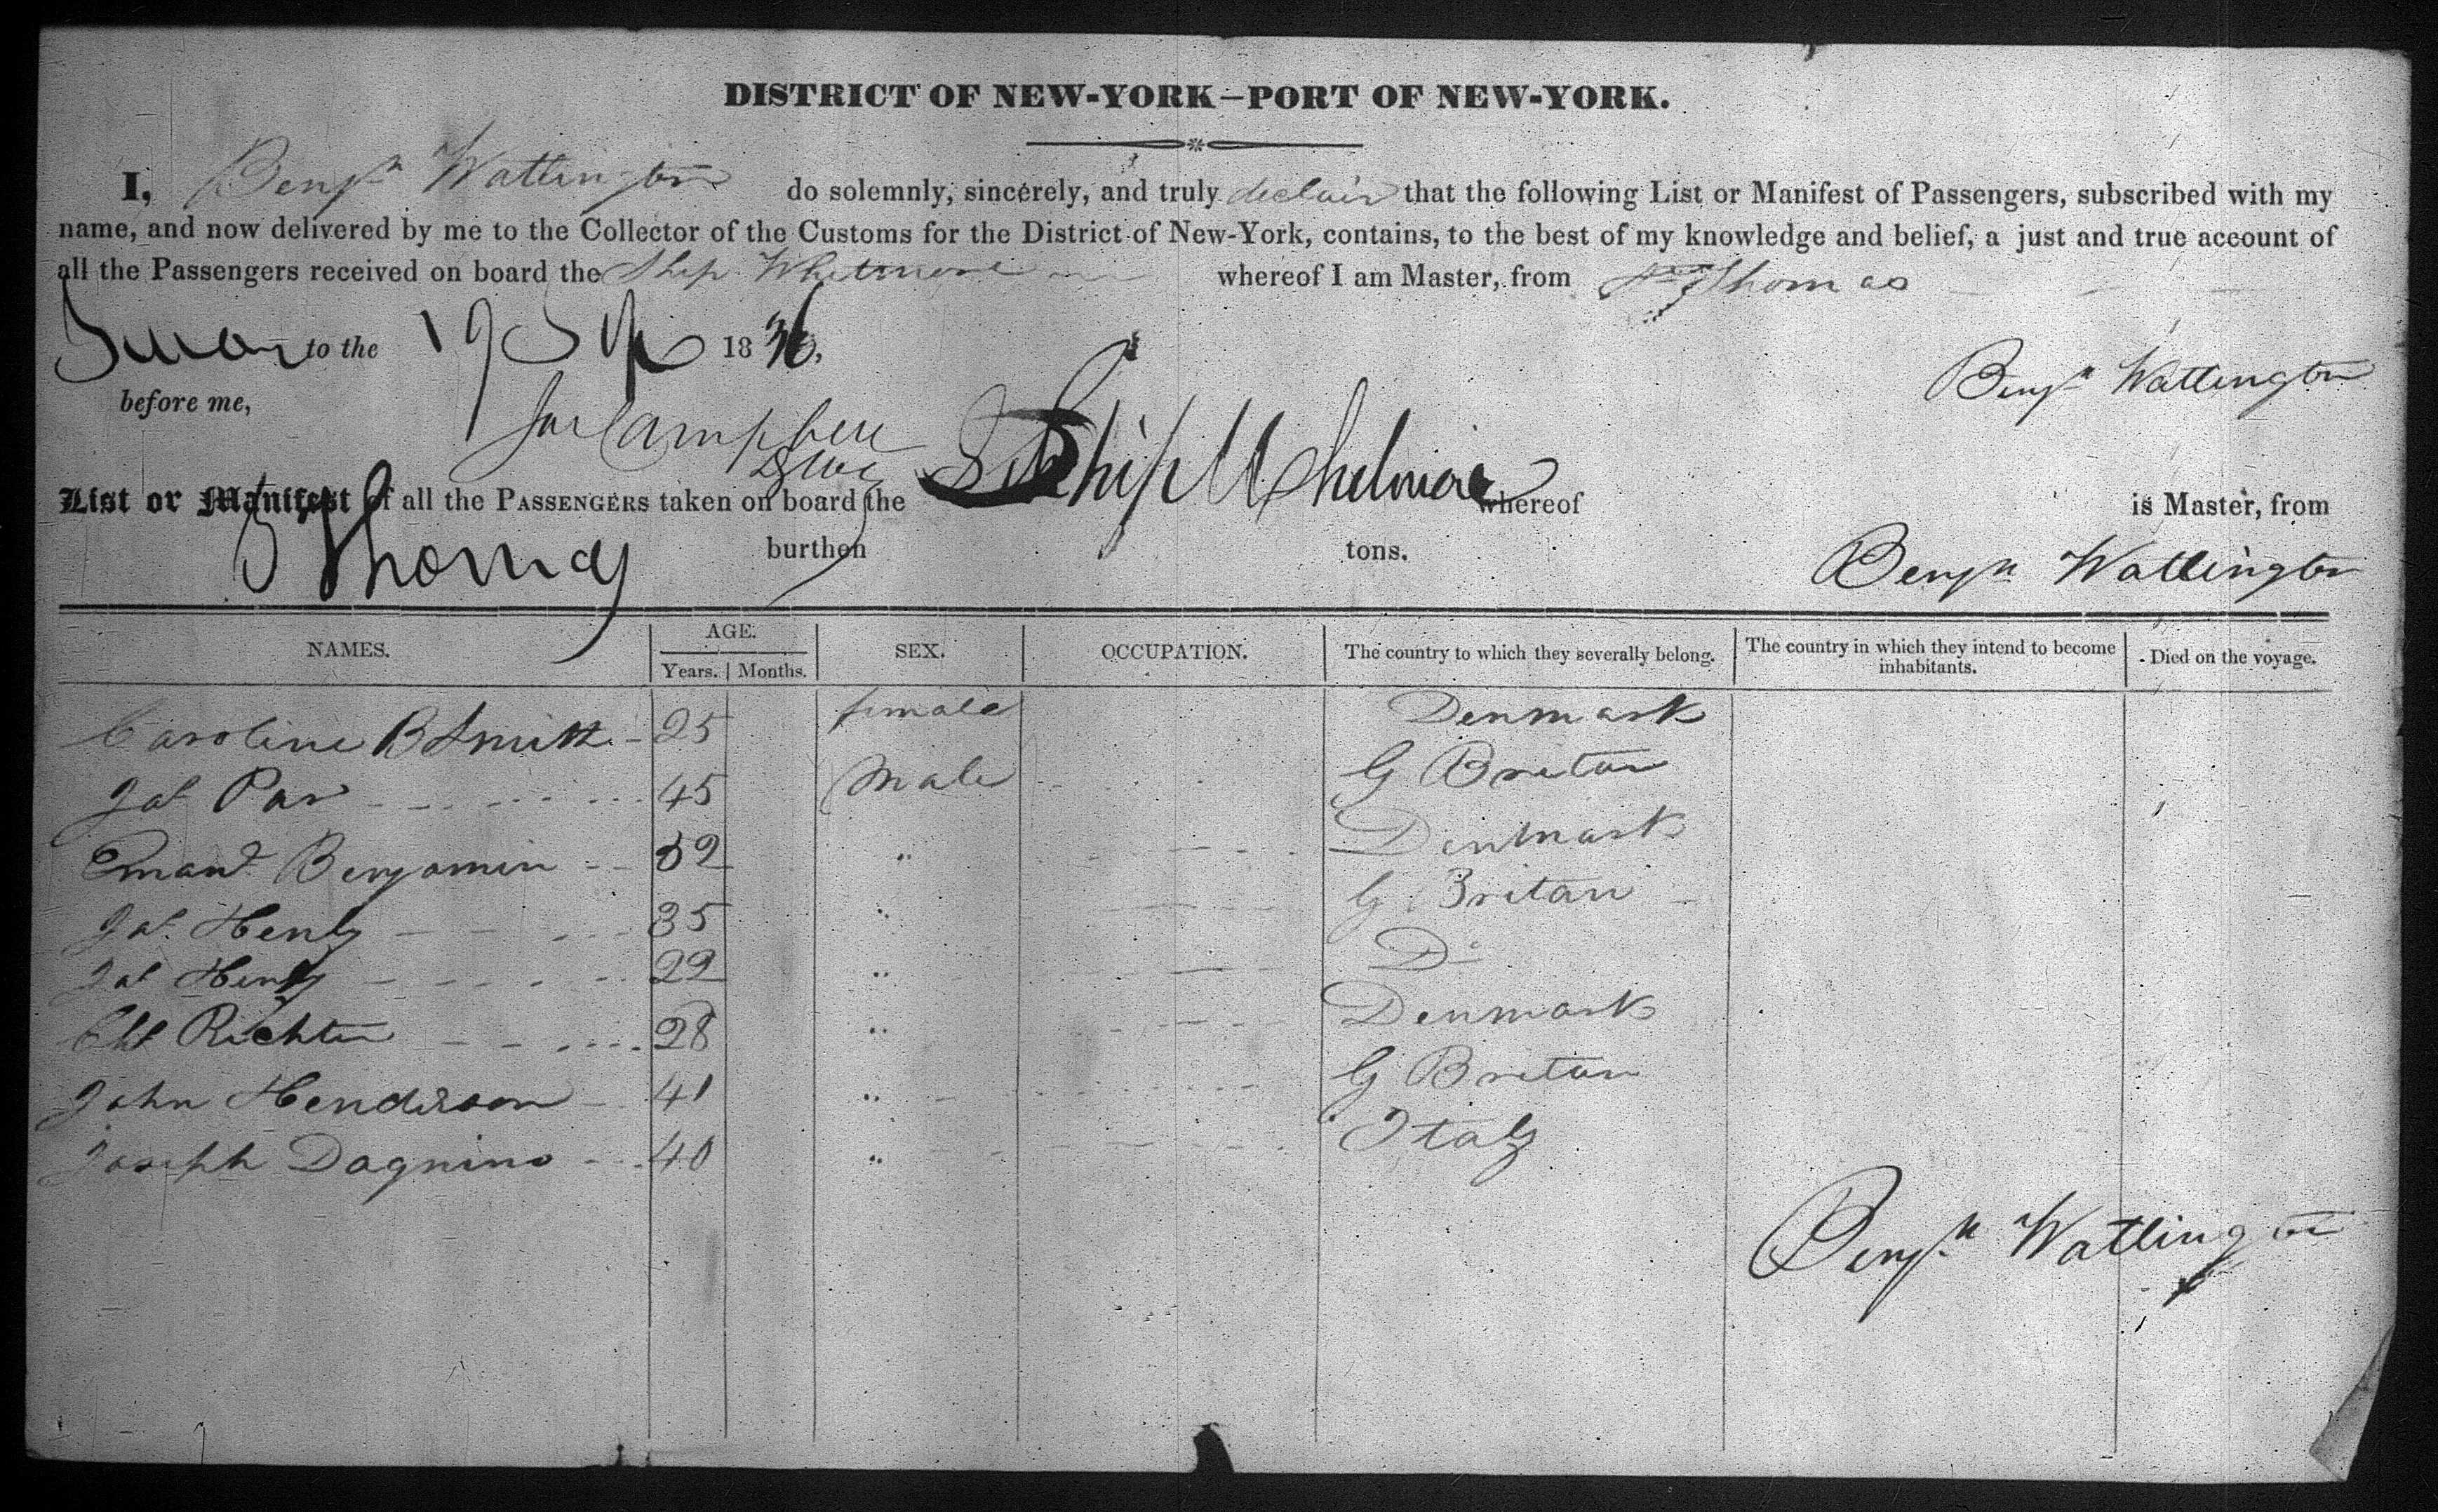 DISTRICT OF NEW-YORK—PORT OF NEW-YORK.
I, Benjn Watlington do solemnly, sincerely, and truly declair that the following List or Manifest of Passengers, subscribed with my
name, and now delivered by me to the Collector of the Customs for the District of New-York, contains, to the best of my knowledge and belief, a just and true account of
all the Passengers received on board the Ship Whitmore whereof I am Master, from St Thomas
Sworn to the 19 Sep 1836.
Benjn Watlington
before me,
Jas Campbell
List or Manifest of all the PASSENGERS taken on board the Ship Whitmore whereof is Master, from
St Thomas burthen tons.
Benjn Watlington
NAMES. AGE. Years. Months. SEX. OCCUPATION. The country to which they severally belong. The country in which they intend to become inhabitants. Died on the voyage.
Caroline B Smith 25 female Denmark
Jas Par 45 Male G Britan
Emanl Benjamin 32 " Denmark
Jas. Henly 35 " G. Britan
Jas Henly 22 " Do
Richter 28 " Denmark
John Henderson 41 " G Britan
Joseph Dagnino 40 " Italy
Benjn Watlington